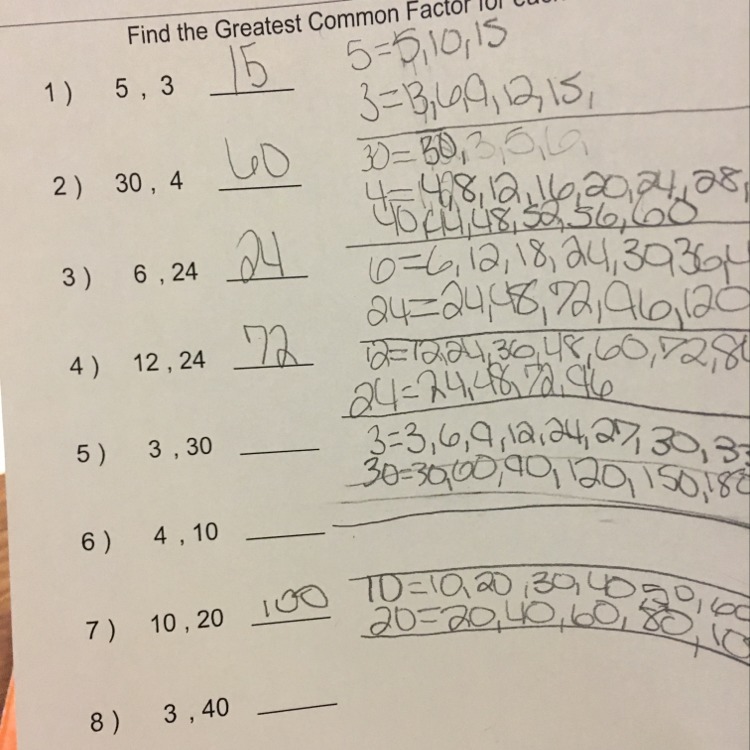 Find the Greatest Common Factor for each
1) 5 , 3 15 5=5,10,15
3=3,6,9,12,15,
2) 30 , 4 60 30=30,3,5,6,
4=4,8,12,16,20,24,28,
40,44,48,52,56,60
3) 6 , 24 24 6=6,12,18,24,30,36,4
24=24,48,72,96,120
4) 12 , 24 72 12=12,24,36,48,60,72,8
24=24,48,72,96
5) 3 , 30 3=3,6,9,12,24,27,30,33
30=30,60,90,120,150,180
6) 4 , 10
7) 10 , 20 100 10=10,20,30,40,50,60
20=20,40,60,80,10
8) 3 , 40